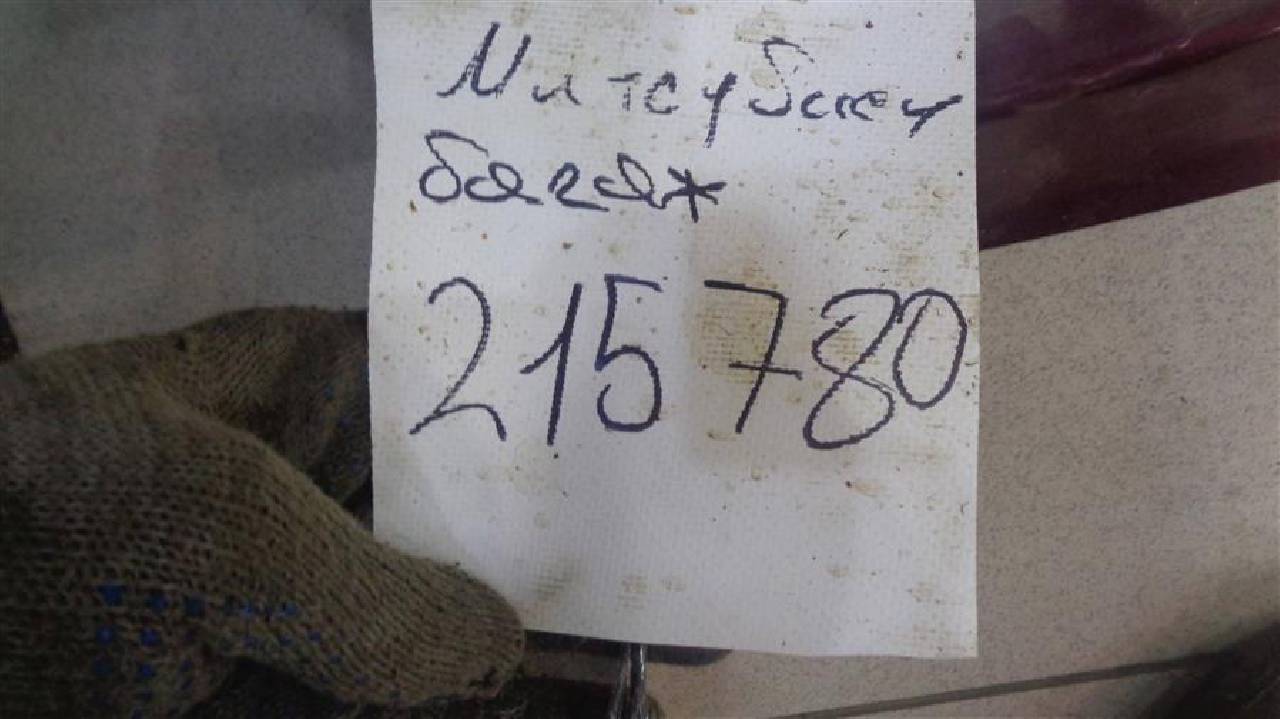 Митсубиси
багаж
215780